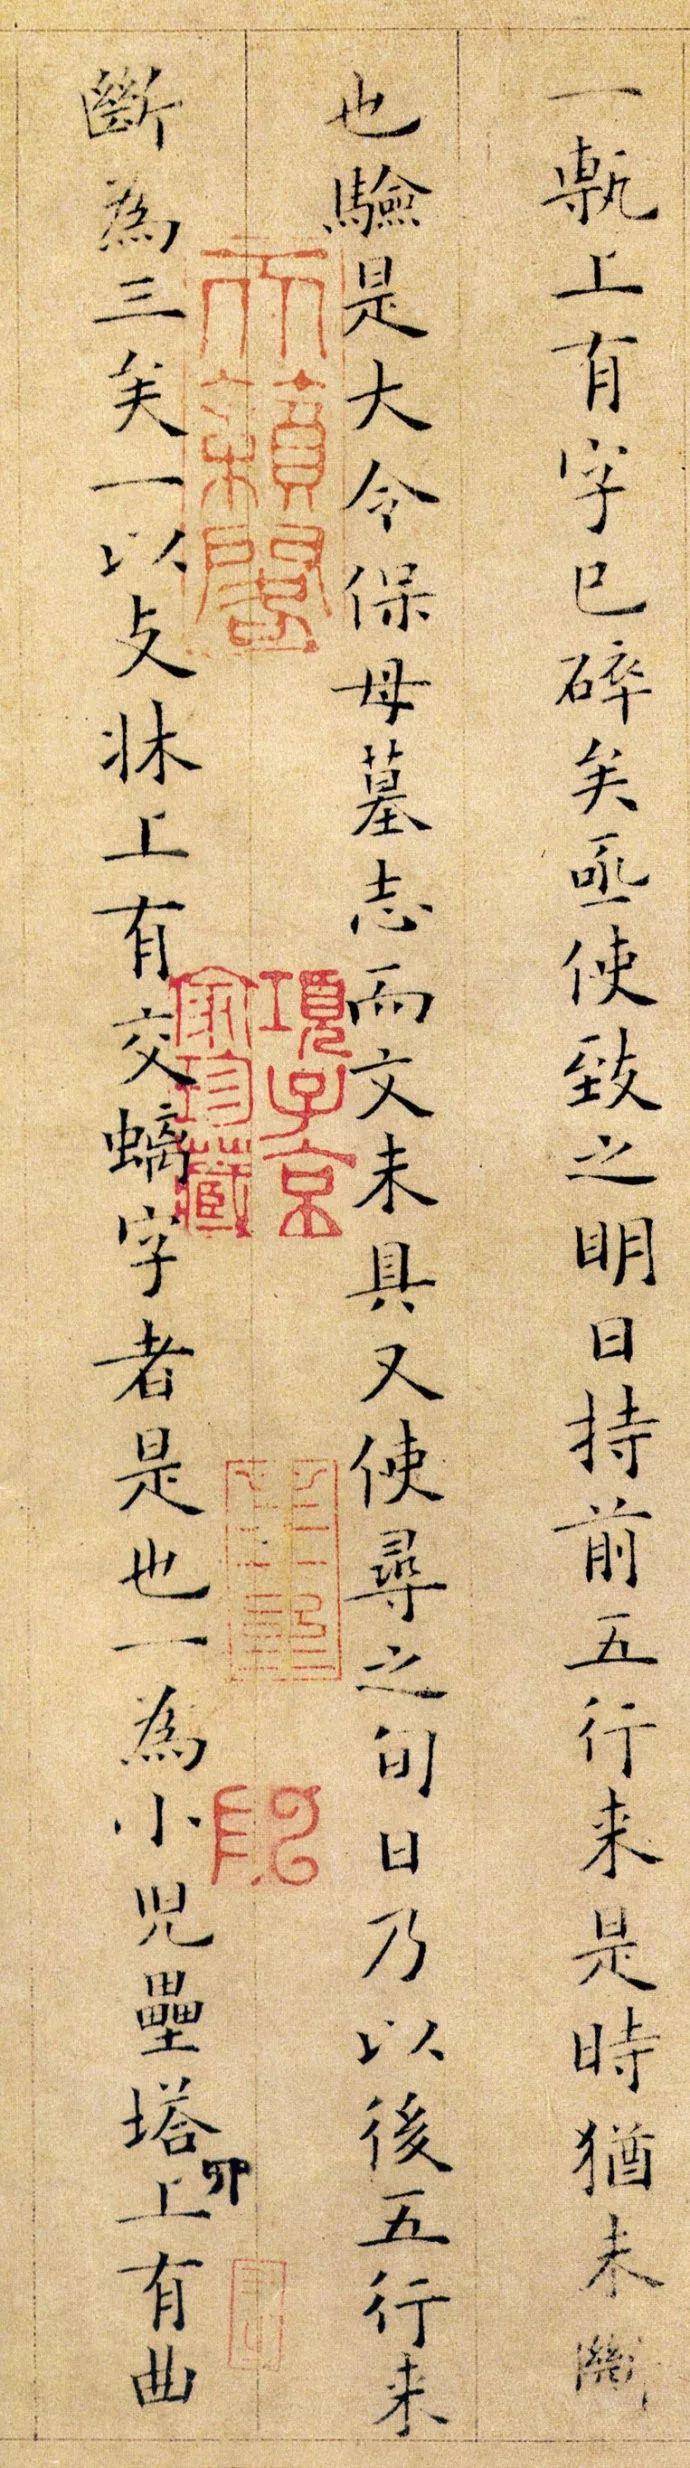 一甎上有字已碎矣亟使致之明日持前五行来是時猶未斷
也驗是大令保母墓志而文未具又使尋之旬日乃以後五行来
斷為三矣一以支牀上有交螭字者是也一為小兒壘塔上有曲
天籟閣
項子京家珍藏